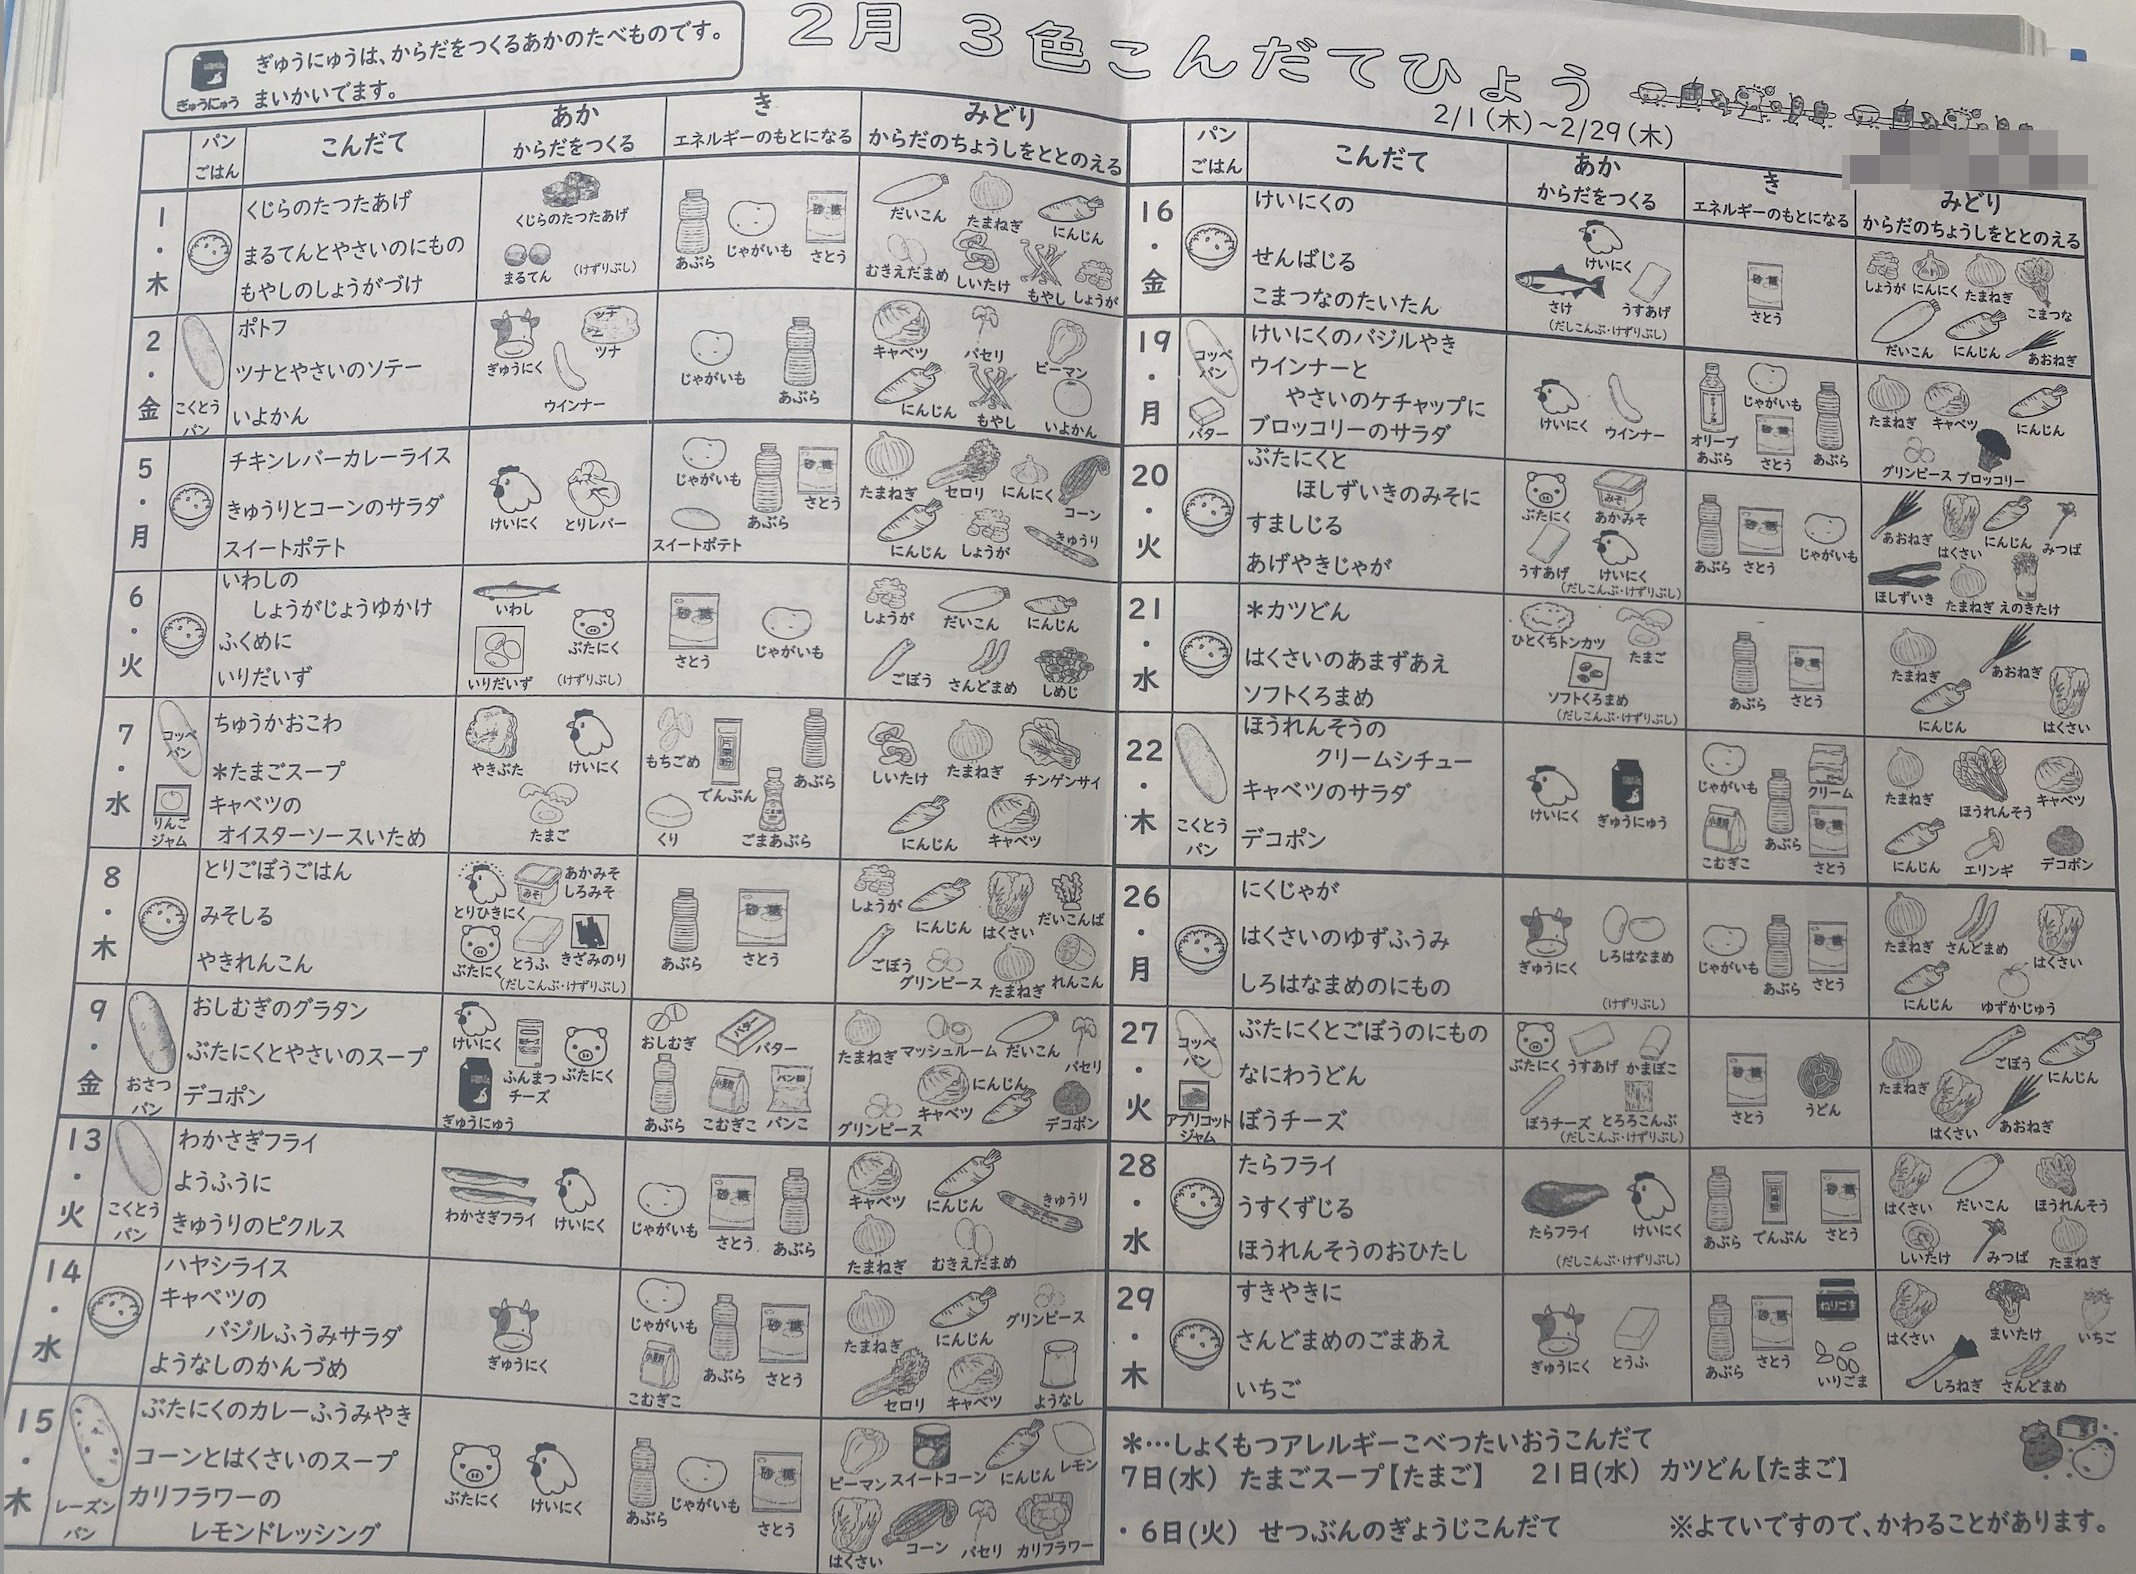 ぎゅうにゅうは、からだをつくるあかのたべものです。
ぎゅうにゅう まいかいでます。
2月 3色こんだてひょう
2/1(木)～2/29(木)
パン ごはん
こんだて
あか
からだをつくる
き
エネルギーのもとになる
みどり
からだのちょうしをととのえる
1・木
くじらのたつたあげ
まるてんとやさいのにもの
もやしのしょうがづけ
くじらのたつたあげ
まるてん (けずりぶし)
あぶら じゃがいも 砂糖 さとう
だいこん たまねぎ にんじん
むきえだまめ しいたけ もやし しょうが
2・金
こくとうパン
ポトフ
ツナとやさいのソテー
いよかん
ぎゅうにく ツナ ツナ
ウインナー
じゃがいも あぶら
キャベツ パセリ ピーマン
にんじん もやし いよかん
5・月
チキンレバーカレーライス
きゅうりとコーンのサラダ
スイートポテト
けいにく とりレバー
じゃがいも あぶら 砂糖 さとう
スイートポテト
たまねぎ セロリ にんにく コーン
にんじん しょうが きゅうり
6・火
いわしの
しょうがじょうゆかけ
ふくめに
いりだいず
いわし ぶたにく
いりだいず (けずりぶし)
砂糖 さとう じゃがいも
しょうが だいこん にんじん
ごぼう さんどまめ しめじ
7・水
コッペパン
りんごジャム
ちゅうかおこわ
＊たまごスープ
キャベツの
オイスターソースいため
やきぶた けいにく
たまご
もちごめ 片栗粉 でんぷん あぶら
くり ごまあぶら
しいたけ たまねぎ チンゲンサイ
にんじん キャベツ
8・木
とりごぼうごはん
みそしる
やきれんこん
とりひきにく みそ あかみそ しろみそ
ぶたにく とうふ きざみのり
(だしこんぶ・けずりぶし)
あぶら 砂糖 さとう
しょうが にんじん はくさい だいこんば
ごぼう グリンピース たまねぎ れんこん
9・金
おさつパン
おしむぎのグラタン
ぶたにくとやさいのスープ
デコポン
けいにく ふんまつチーズ ぶたにく
ぎゅうにゅう
おしむぎ バター バター
あぶら 小麦粉 こむぎこ パン粉 パンこ
たまねぎ マッシュルーム だいこん パセリ
グリンピース キャベツ にんじん デコポン
13・火
こくとうパン
わかさぎフライ
ようふうに
きゅうりのピクルス
わかさぎフライ けいにく
じゃがいも 砂糖 さとう あぶら
キャベツ にんじん きゅうり
たまねぎ むきえだまめ
14・水
ハヤシライス
キャベツの
バジルふうみサラダ
ようなしのかんづめ
ぎゅうにく
じゃがいも あぶら 砂糖 さとう
小麦粉 こむぎこ
たまねぎ にんじん グリンピース
セロリ キャベツ ようなし
15・木
レーズンパン
ぶたにくのカレーふうみやき
コーンとはくさいのスープ
カリフラワーの
レモンドレッシング
ぶたにく けいにく
あぶら じゃがいも 砂糖 さとう
ピーマン スイートコーン にんじん レモン
はくさい コーン パセリ カリフラワー
パン ごはん
こんだて
あか
からだをつくる
き
エネルギーのもとになる
みどり
からだのちょうしをととのえる
16・金
けいにくの
せんばじる
こまつなのたいたん
けいにく
さけ うすあげ
(だしこんぶ・けずりぶし)
さとう
しょうが にんにく たまねぎ こまつな
だいこん にんじん あおねぎ
19・月
コッペパン
バター
けいにくのバジルやき
ウインナーと
やさいのケチャップに
ブロッコリーのサラダ
けいにく ウインナー
オリーブあぶら じゃがいも さとう あぶら
たまねぎ キャベツ にんじん
グリンピース ブロッコリー
20・火
ぶたにくと
ほしずいきのみそに
すましじる
あげやきじゃが
ぶたにく みそ あかみそ
うすあげ けいにく
(だしこんぶ・けずりぶし)
あぶら さとう じゃがいも
あおねぎ はくさい にんじん みつば
ほしずいき たまねぎ えのきたけ
21・水
＊カツどん
はくさいのあまずあえ
ソフトくろまめ
ひとくちトンカツ たまご
ソフトくろまめ
(だしこんぶ・けずりぶし)
あぶら さとう
たまねぎ あおねぎ
にんじん はくさい
22・木
こくとうパン
ほうれんそうの
クリームシチュー
キャベツのサラダ
デコポン
けいにく ぎゅうにゅう
じゃがいも クリーム
小麦粉 こむぎこ あぶら 砂糖 さとう
たまねぎ ほうれんそう キャベツ
にんじん エリンギ デコポン
26・月
にくじゃが
はくさいのゆずふうみ
しろはなまめのにもの
ぎゅうにく しろはなまめ
(けずりぶし)
じゃがいも あぶら 砂糖 さとう
たまねぎ さんどまめ はくさい
にんじん ゆずかじゅう
27・火
コッペパン
アプリコットジャム
ぶたにくとごぼうのにもの
なにわうどん
ぼうチーズ
ぶたにく うすあげ かまぼこ
ぼうチーズ とろろこんぶ
(だしこんぶ・けずりぶし)
砂糖 さとう うどん
たまねぎ ごぼう にんじん
はくさい あおねぎ
28・水
たらフライ
うすくずじる
ほうれんそうのおひたし
たらフライ けいにく
(だしこんぶ・けずりぶし)
あぶら 片栗粉 でんぷん 砂糖 さとう
はくさい だいこん ほうれんそう
しいたけ みつば たまねぎ
29・木
すきやきに
さんどまめのごまあえ
いちご
ぎゅうにく とうふ
あぶら 砂糖 さとう ねりごま
いりごま
はくさい まいたけ いちご
しろねぎ さんどまめ
＊…しょくもつアレルギーこべつたいおうこんだて
7日(水) たまごスープ【たまご】 21日(水) カツどん【たまご】
・6日(火) せつぶんのぎょうじこんだて ※よていですので、かわることがあります。